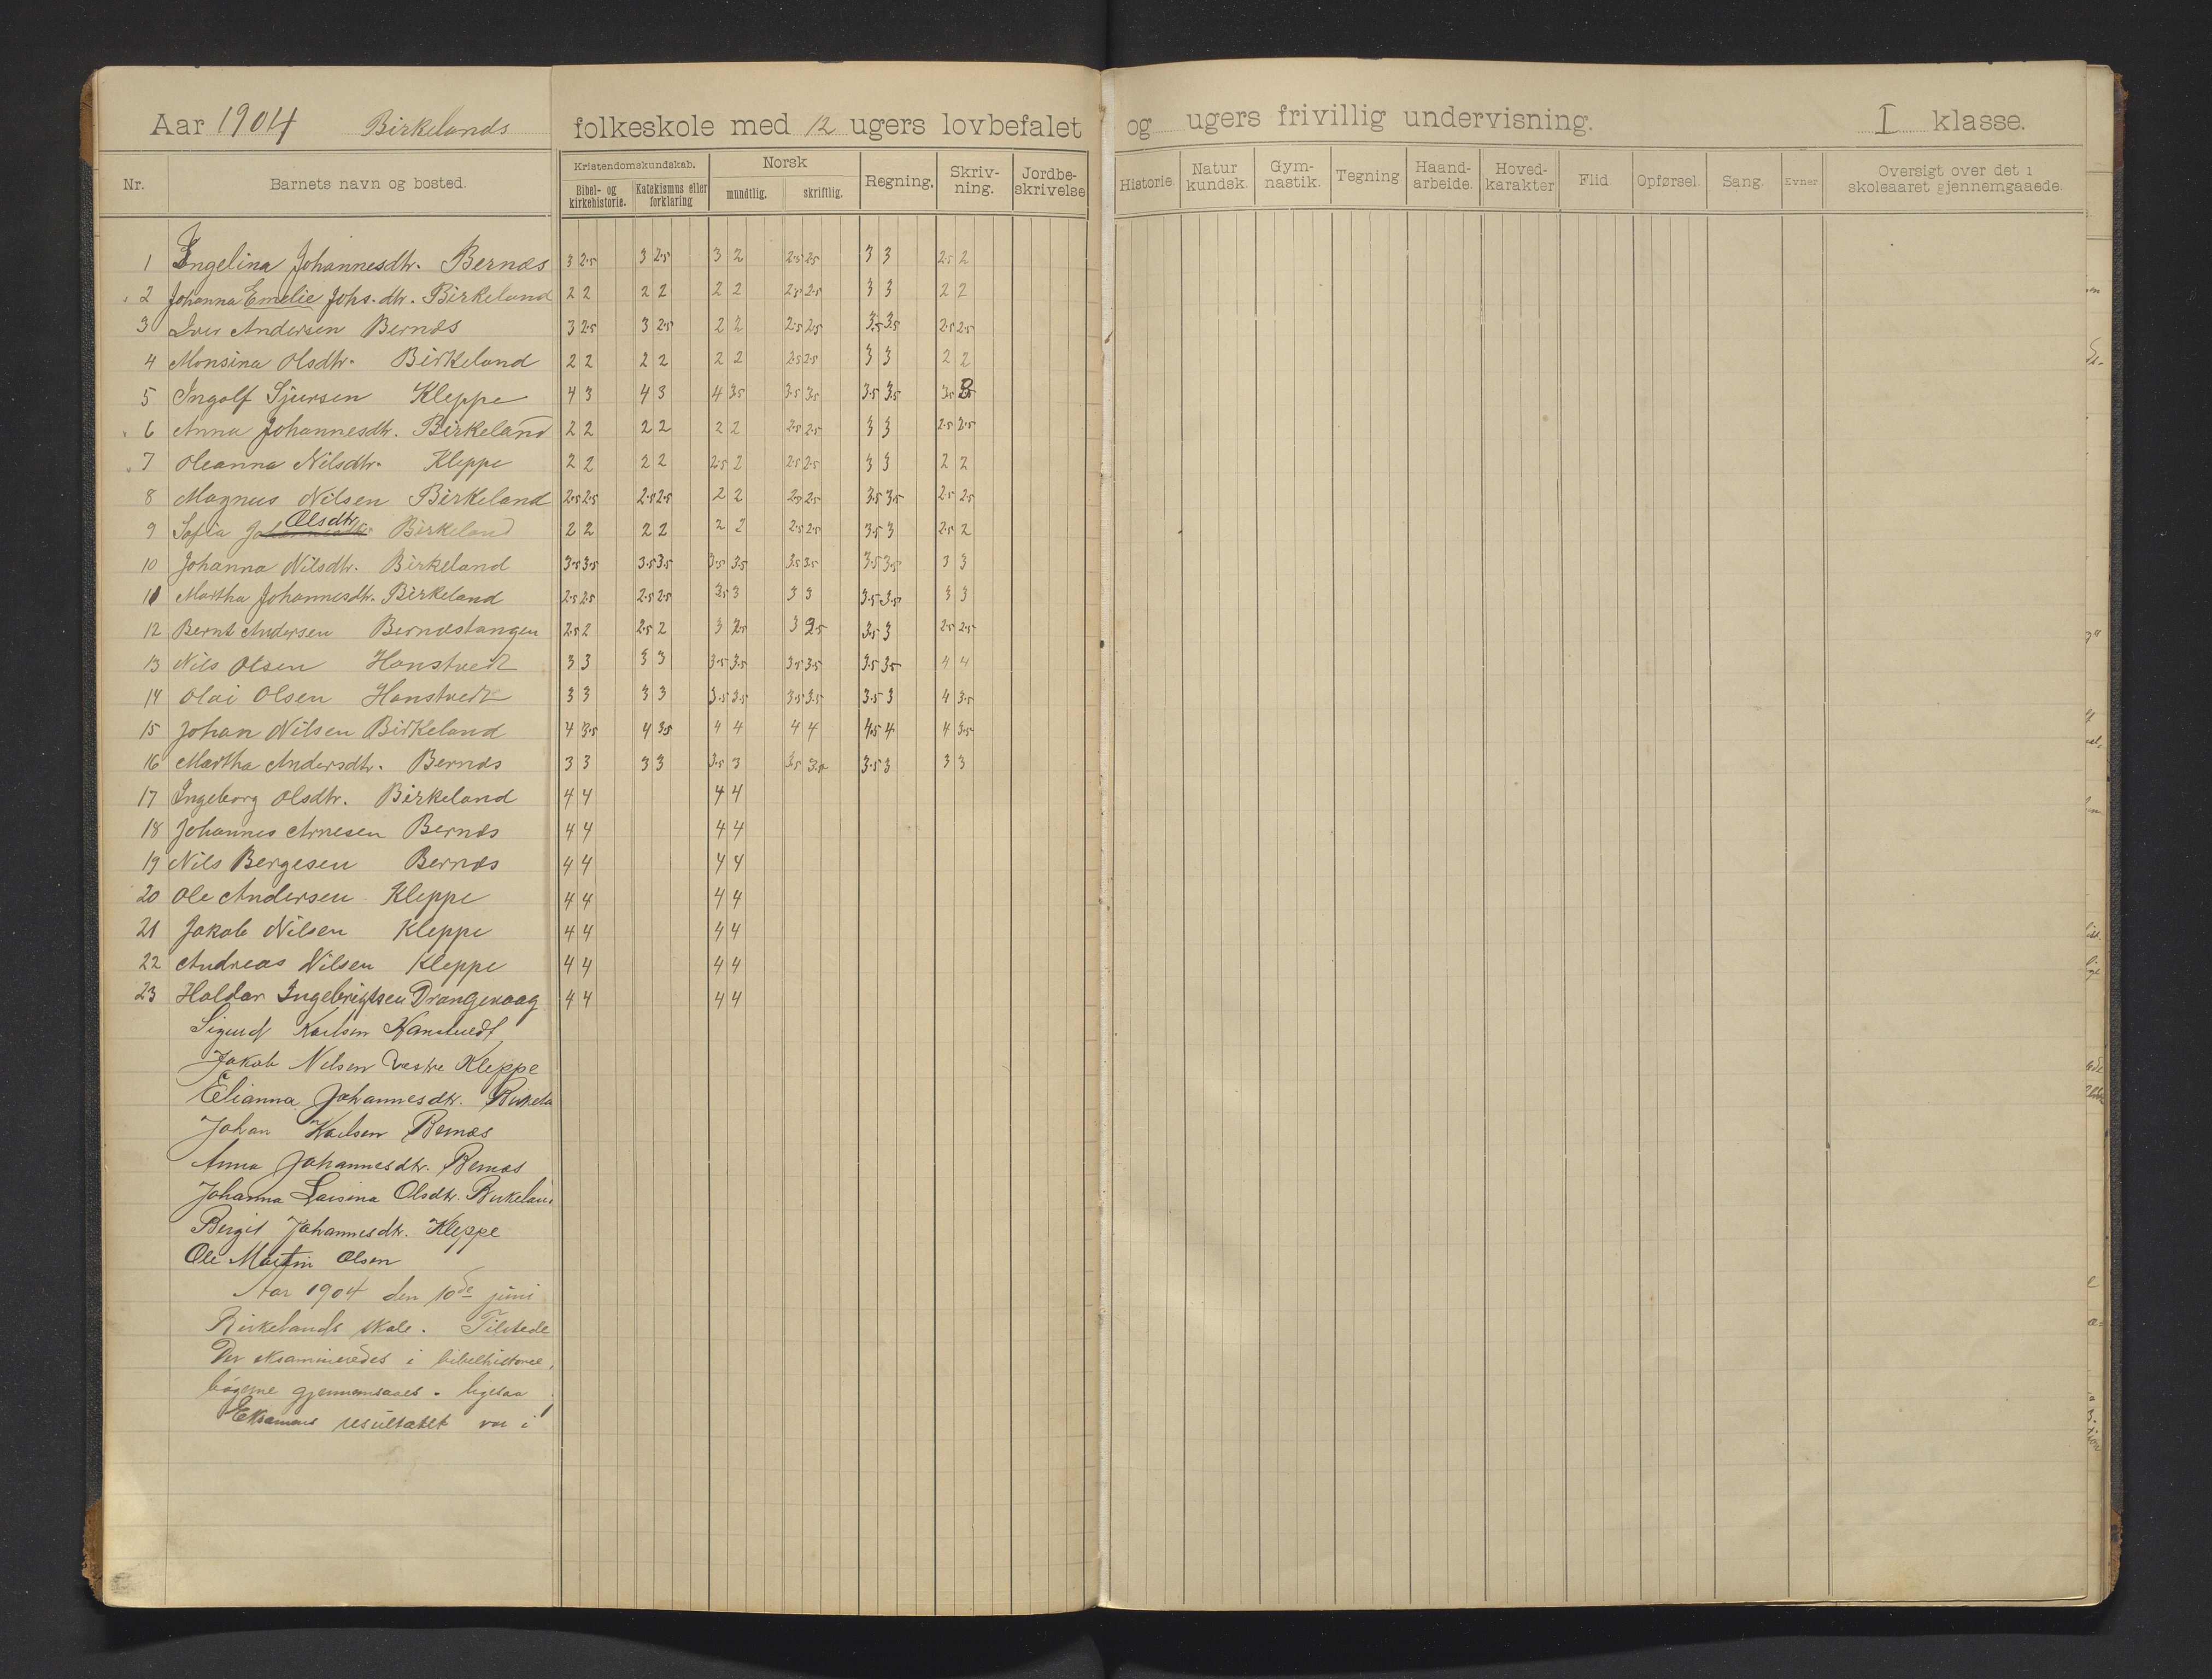 Aar 1904 Birkelands folkeskole med 12 ugers lovbefalet og ugers frivillig undervisning. I klasse.
Nr. Barnets navn og bosted. Kristendomskundskab. Bibel- og kirkehistorie. Katekismus eller forklaring Norsk mundtlig. skriftlig. Regning. Skriv-ning. Jordbe-skrivelse Historie. Natur kundsk. Gym-nastik. Tegning Haand-arbeide. Hoved-karakter Flid Opførsel. Sang. Evner Oversigt over det i skoleaaret gjennemgaaede.
1 Ingelina Johannesdtr. Bernæs 3 2.5 3 2.5 3 2 2.5 2.5 3 3 2.5 2
2 Johanna Emelie Johs. dtr. Birkeland 2 2 2 2 2 2 2.5 2.5 3 3 2 2
3 Iver Andersen Bernæs 3 2.5 3 2.5 2 2 2.5 2.5 3.5 3.5 2.5 2.5
4 Monsina Olsdtr. Birkeland 2 2 2 2 2 2 2.5 2.5 3 3 2 2
5 Ingolf Sjursen Kleppe 4 3 4 3 4 3.5 3.5 3.5 3.5 3.5 3.5
6 Anna Johannesdtr. Birkeland 2 2 2 2 2 2 2.5 2.5 3 3 2.5 2.5
7 Oleanna Nilsdtr. Kleppe 2 2 2 2 2.5 2 2.5 2.5 3 3 2 2
8 Magnus Nilsen Birkeland 2.5 2.5 2.5 2.5 2 2 2.5 2.5 3.5 3.5 2.5 2.5
9 Sofia Olsdtr Birkeland 2 2 2 2 2 2 2.5 2.5 3.5 3 2.5 2
10 Johanna Nilsdtr. Birkeland 3.5 3.5 3.5 3.5 3.5 3.5 3.5 3.5 3.5 3.5 3 3
11 Martha Johannesdtr. Birkeland 2.5 2.5 2.5 2.5 3.5 3 3 3 3.5 3.5 3 3
12 Bernt Andersen Bernæstangen 2.5 2 2.5 2 3 2.5 3 2.5 3.5 3 2.5 2.5
13 Nils Olsen Hanstvedt 3 3 3 3 3.5 3.5 3.5 3.5 3.5 3.5 4 4
14 Olai Olsen Hanstvedt 3 3 3 3 3.5 3.5 3.5 3.5 3.5 3 4 3.5
15 Johan Nilsen Birkeland 4 3.5 4 3.5 4 4 4 4 4.5 4 4 3.5
16 Martha Andersdtr. Bernæs 3 3 3 3 3.5 3 3.5 3.5 3.5 3 3 3
17 Ingeborg Olsdtr. Birkeland 4 4 4 4
18 Johannes Arnesen Bernæs 4 4 4 4
19 Nils Bergesen Bernæs 4 4 4 4
20 Ole Andersen Kleppe 4 4 4 4
21 Jakob Nilsen Kleppe 4 4 4 4
22 Andreas Nilsen Kleppe 4 4 4 4
23 Haldor Ingebrigtsen Drangevaag 4 4 4 4
Sigurd Karlsen Hanstvedt
Jakob Nilsen Vestre Kleppe
Elianna Johannesdtr. Birkela
Johan Karlsen Bernæs
Anna Johannesdtr. Bernæs
Johanna Lovisina Olsdtr. Birkelan
Bergit Johannesdtr. Kleppe
Ole Martin Olsen
Aar 1904 den 10de juni
Birkelands skole. Tilstede
Der eksamineredes i bibelhistorie,
bøgerne gjennemsaaes. ligesaa
Eksamens resultatet var i